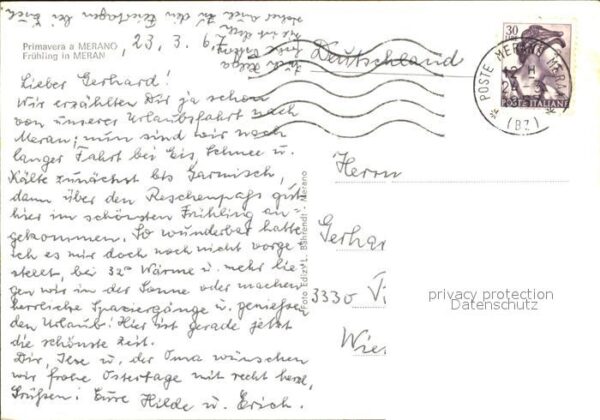 Primavera a MERANO
Frühling in MERAN
23. 3. 67
Deutschland
30
POSTE ITALIANE
POSTE MERANO MERAN
(BZ)
Lieber Gerhard!
Wir erzählten Dir ja schon
von unserer Urlaubsfahrt nach
Meran; nun sind wir nach
langer Fahrt bei Eis, Schnee u.
Kälte zunächst bis Garmisch,
dann über den Reschenpaß gut
hier im schönsten Frühling an-
gekommen. So wunderbar hatte
ich es mir doch noch nicht vorge
stellt, bei 32° Wärme u. mehr lie-
gen wir in der Sonne oder machen
herrliche Spaziergänge u. genießen
den Urlaub! Hier ist gerade jetzt
die schönste Zeit.
Dir, Ilse u. der Oma wünschen
wir frohe Ostertage mit recht herzl.
Grüßen! Eure Hilde u. Erich.
Foto Ediz. L. Bährendt - Merano
Herrn
Gerhar
3330 V
Wie
privacy protection
Datenschutz